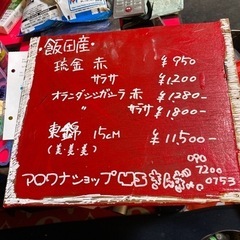 飯田産
琉金 赤 ¥950
サラサ ¥1,200
オランダシシガシラ 赤 ¥1280-
〃 サラサ ¥1800-
東錦 15cM ¥11,500-
(美・美・美)
アロワナショップ
090
7200
0753